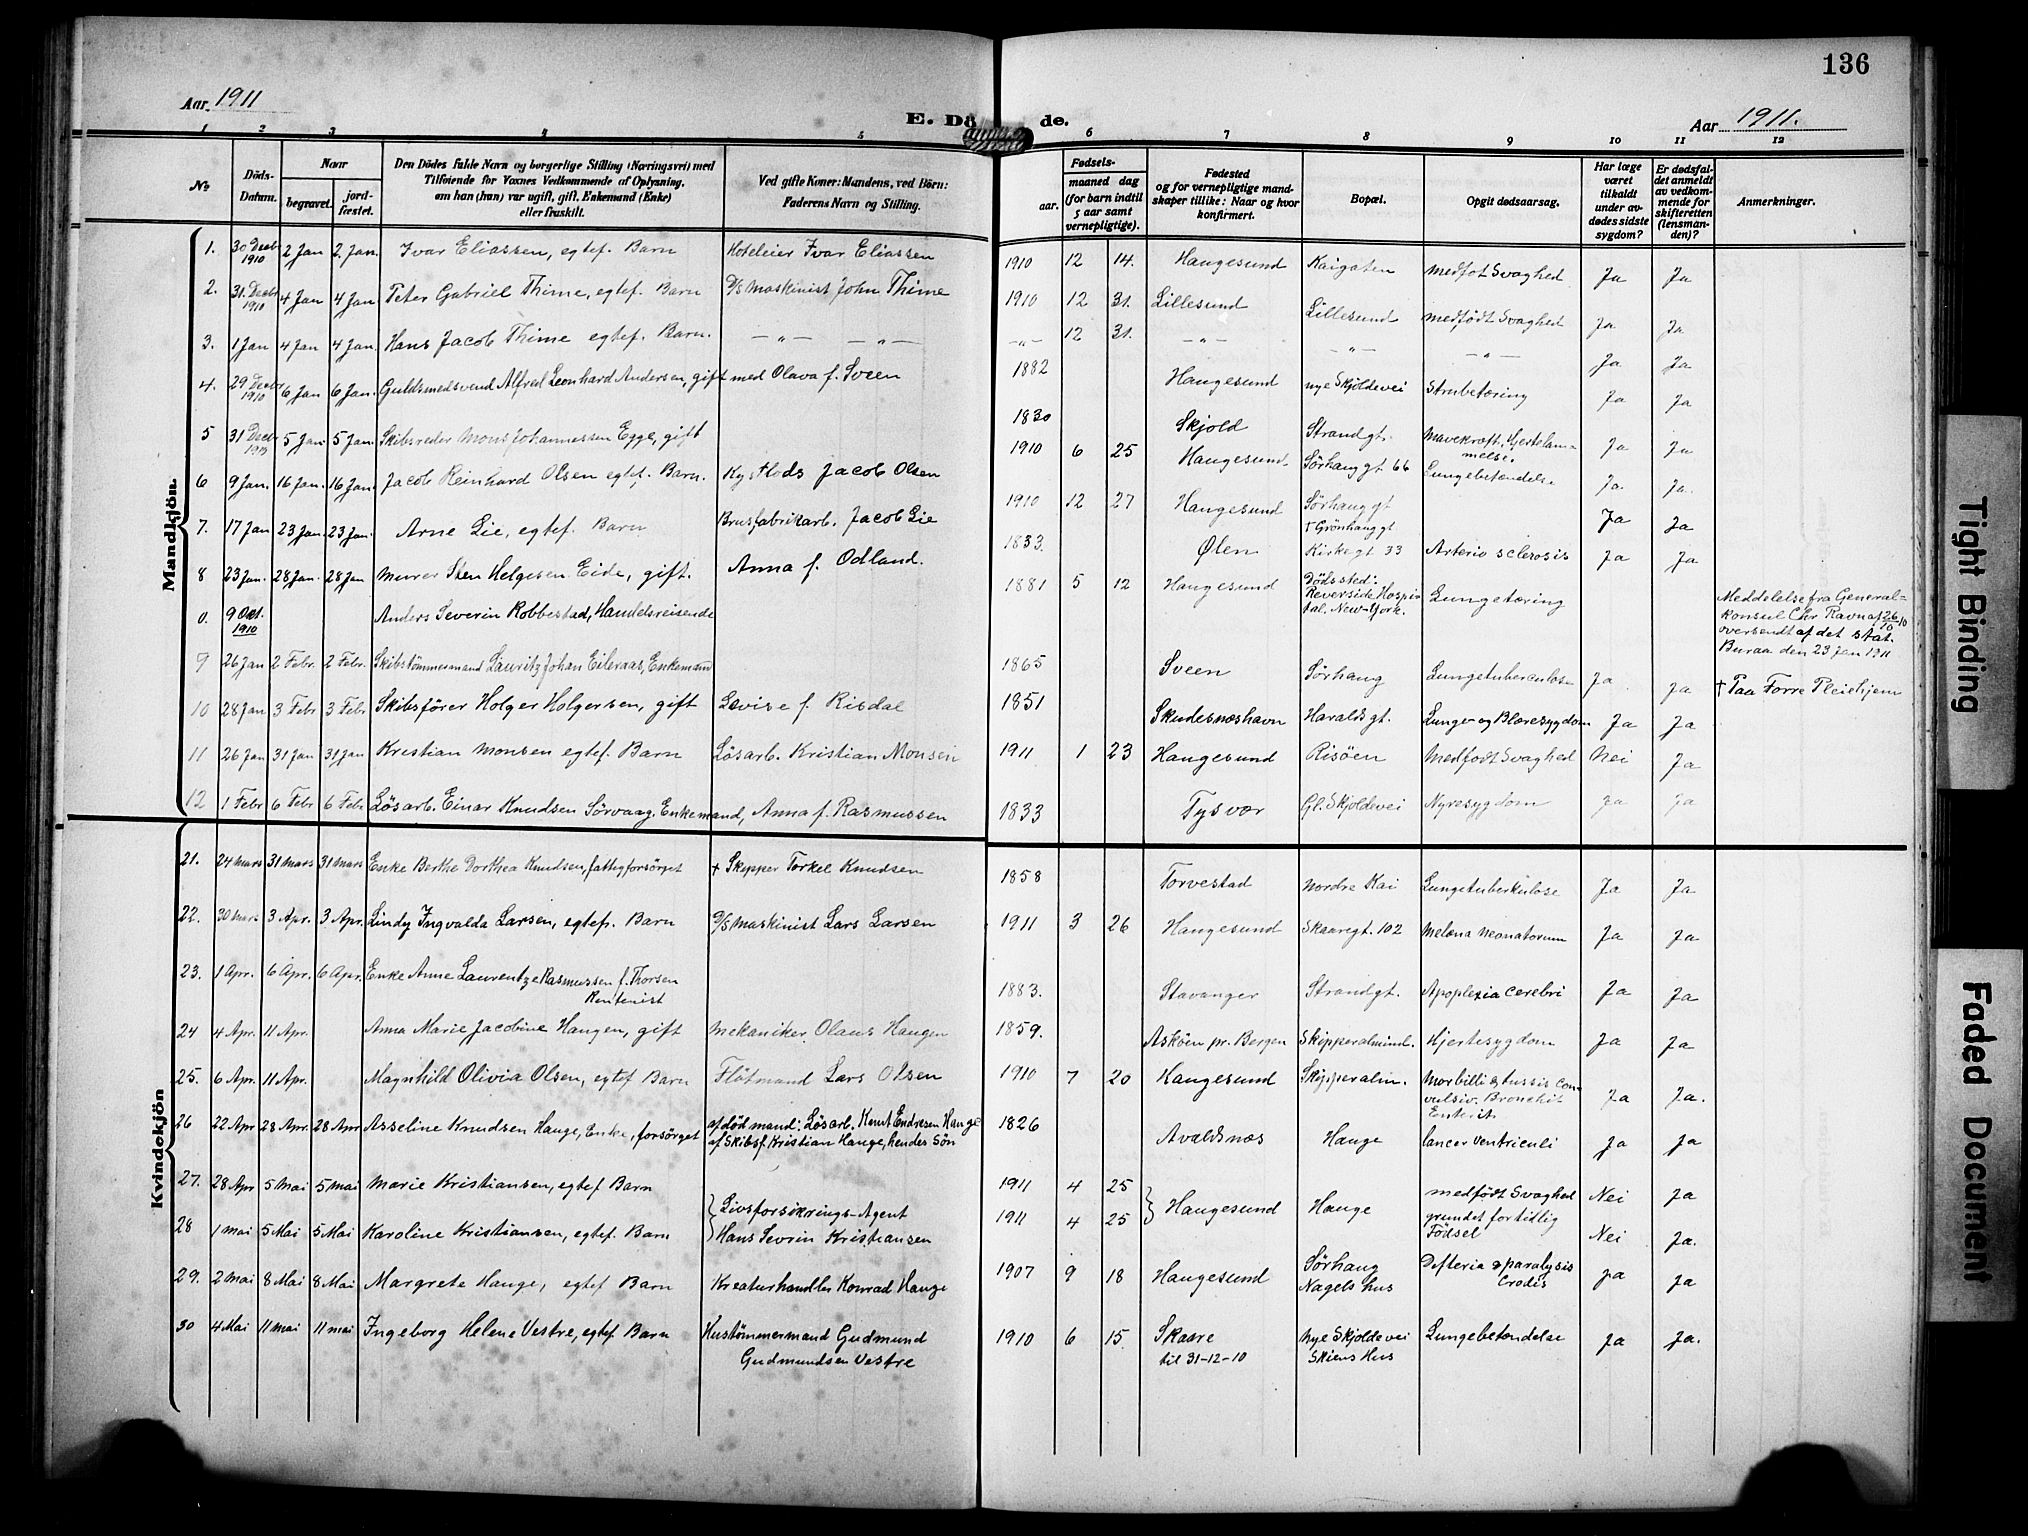 136
Aar 1911
E. Dö de.
Aar 1911.
1 2 3 4 5 6 7 8 9 10 11 12
No
Döds-Datum.
Naar
begravet.
jord-fæstet.
Den Dödes fulde Navn og borgerlige Stilling (Næringsvei) med
Tilföiende for Voxnes Vedkommende af Oplysning,
om han (hun) var ugift, gift, Enkemand (Enke)
eller fraskilt.
Ved gifte Koner: Mandens, ved Börn:
Faderens Navn og Stilling.
Fødsels-
aar.
maaned dag
(for barn indtil
5 aar samt
vernepligtige).
Fødested
og for vernepligtige mand-
skaper tillike: Naar og hvor
konfirmert.
Bopæl.
Opgit dødsaarsag.
Har læge
været
tilkaldt
under av-
dødes sidste
sygdom?
Er dødsfal-
det anmeldt
av vedkom-
mende for
skifteretten
(lensman-
den)?
Anmerkninger.
Mandkjön.
1. 30 Decb 1910 2 Jan 2. Jan. Ivar Eliassen, egtef. Barn Hoteleier Ivar Eliassen 1910 12 14. Haugesund Kaigaten medføt Svaghed Ja Ja
2. 31. Decb 1910 4 Jan 4 Jan Peter Gabriel Thime, egtef. Barn D/S Maskinist John Thime 1910 12 31. Lillesund Lillesund medfödt Svaghed Ja Ja
3. 1 Jan 4 Jan 4 Jan. Hans Jacob Thime egtef. Barn. — " — — " — — " — 12 31. — " — — " — — " — Ja Ja
4. 29 Decb 1910 6 Jan 6 Jan. Guldsmedsvend Alfred Leonhard Andersen, gift med Olava f. Sveen 1882 Haugesund nye Skjoldevei Strubetæring Ja Ja
5 31 Decb 1910 5 Jan 5 Jan. Skibsreder Mons Johannessen Egge, gift 1830 Skjold Strandgt. Mavekræft, Hjertelam-
melse. Ja Ja
6 9 Jan. 16 Jan. 16 Jan. Jacob Reinhard Olsen egtef. Barn. Kystlods Jacob Olsen 1910 6 25 Haugesund. Sörhauggt 66 Lungebetændelse Ja. Ja.
7. 17 Jan 23 Jan. 23 Jan. Arne Lie, egtef. Barn Brusfabrikarb. Jacob Lie 1910 12 27 Haugesund Sörhauggt
† Grönhauggt Ja Ja
8 23 Jan. 28 Jan. 28 Jan Murer Sten Helgesen Eide, gift. Anna f. Odland. 1833. Ølen Kirkegt 33 Arterio sclerosis Ja Ja
0. 9 Okt. 1910 Anders Severin Robbestad, Handelsreisende 1881 5 12 Haugesund Dödssted:
Reverside Hospi-
tal. New-York. Lungetæring
Meddelelse fra General=
konsul Chr Ravn af 26/10 10
oversendt af det stat.
Buraa den 23 Jan 1911
9 26 Jan 2 Febr. 2 Febr. Skibstömmermand Lauritz Johan Eileraas, Enkemand 1865 Sveen Sørhaug Lungetuberculose Ja Ja † Paa Førre Pleiehjem
10 28 Jan 3 Febr 3 Febr Skibsförer Holger Holgersen, gift Lovise f. Risdal 1851 Skudesnæshavn Haraldsgt. Lunge- og Blæresygdom Ja Ja
11 26 Jan 31 Jan 31 Jan Kristian Monsen egtef. Barn Lösarb. Kristian Monsen 1911 1 23 Haugesund Risöen Medfødt Svaghed Nei Ja
12 1 Febr 6 Febr 6 Febr Lösarb. Einar Knudsen Sörvaag. Enkemand, Anna f. Rasmussen 1833 Tysvær Gl. Skjoldevei Nyresygdom Ja Ja
Kvindekjön
21. 24 mars 31 mars 31 mars Enke Berthe Dorthea Knudsen, fattigforsörget † Skipper Torkel Knudsen 1858 Torvestad Nordre Kai Lungetuberkulose Ja Ja
22. 30 mars 3 Apr. 3 Apr. Lindy Ingvalda Larsen, egtef. Barn D/S Maskinist Lars Larsen 1911 3 26 Haugesund Skaaregt. 102 Melæna neonatorum Ja Ja
23. 1 Apr. 6 Apr. 6 Apr. Enke Anne Laurentze Rasmussen f. Thorsen
Rentenist 1883. Stavanger Strandgt. Apoplexia cerebri Ja Ja
24 4 Apr. 11 Apr. Anna Marie Jacobine Haugen, gift Mekaniker Olaus Haugen 1859. Asköen pr. Bergen Skipperalmind. Hjertesygdom Ja Ja
25. 6 Apr. 11 Apr. Magnhild Olivia Olsen, egtef Barn Flötmand Lars Olsen 1910 7 20 Haugesund Skipperalm. Morbilli & tussis con-
vulsiv. Bronchit
Enterit. Ja Ja.
26 22 Apr 28 Apr. 28 Apr Asseline Knudsen Hauge, Enke, forsörget af död mand: Lösarb. Knut Endresen Hauge
af Skibsf. Kristian Hauge, hendes Sön 1826 Avaldsnæs Hauge Cancer ventriculi Ja Ja
27. 28 Apr 5 Mai 5 Mai Marie Kristiansen, egtef Barn 1911 4 25 medfödt Svaghed Nei Ja
Livsforsikrings-Agent
Haugesund Hauge
grundet fortidlig
Födsel
28 1 Mai 5 Mai 5 Mai Karoline Kristiansen, egtef. Barn Hans Sevrin Kristiansen 1911 4 25 Nei Ja.
29. 2 Mai 8 Mai 8 Mai Margrete Hauge, egtef Barn Kreaturhandler Konrad Hauge 1907 9 18 Haugesund Sørhaug
Nagels hus Defteria & paralysis
Crodis Ja Ja
30 4 Mai 11 Mai 11 Mai Ingeborg Helene Vestre, egtef. Barn Hustömmermand Gudmund
Gudmundsen Vestre 1910 6 15 Skaare
til 31-12-10 Nye Skjoldevei
Skiens Hus Lungebetændelse Ja Ja.
Tight Binding
Faded Document